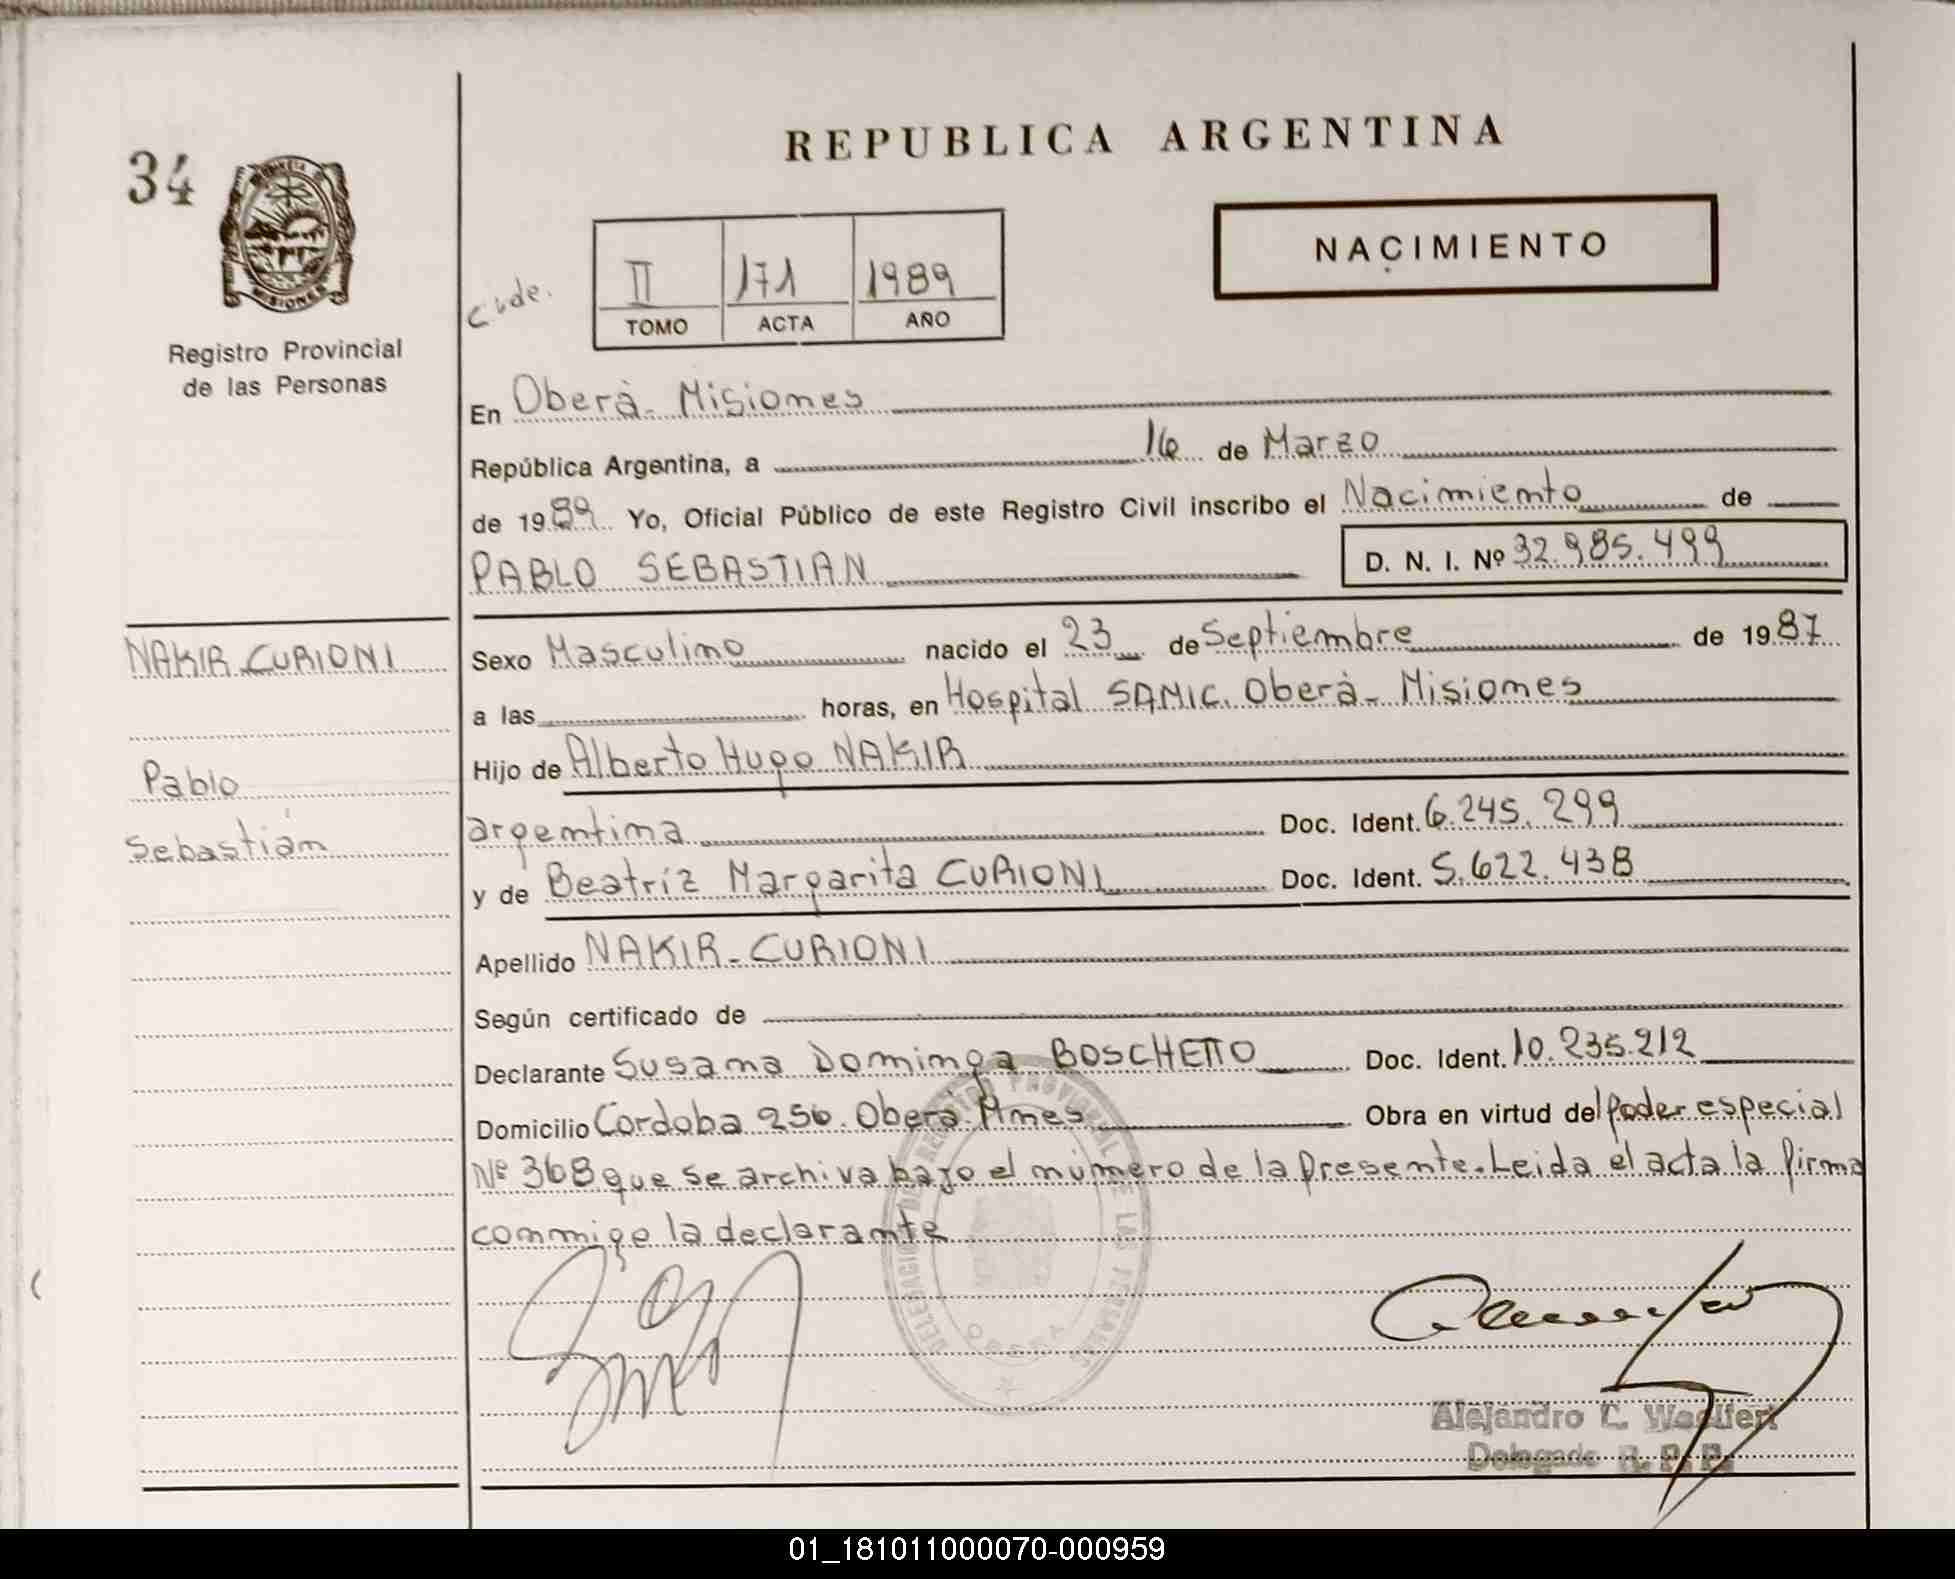 REPUBLICA ARGENTINA
34
NACIMIENTO
II 171 1989
TOMO ACTA AÑO
Registro Provincial
de las Personas
En Oberà - Misiones
República Argentina, a 16 de Marzo
de 1989 Yo, Oficial Público de este Registro Civil inscribo el Nacimiento de
PABLO SEBASTIAN D. N. I. Nº 32.985.499
NAKIR CURIONI
Pablo
Sebastián
Sexo Masculino nacido el 23 de Septiembre de 1987
a las horas, en Hospital SAMIC. Oberà - Misiones
Hijo de Alberto Hugo NAKIR
argentina Doc. Ident. 6.245.299
y de Beatríz Margarita CURIONI Doc. Ident. 5.622.438
Apellido NAKIR - CURIONI
Según certificado de
Declarante Susana Dominga BOSCHETTO Doc. Ident. 10.235.212
Domicilio Córdoba 256. Oberà Mnes Obra en virtud del Poder especial
Nº 368 que se archiva bajo el número de la presente. Leida el acta la firma
conmigo la declarante
DELEGACION DEL REGISTRO PROVINCIAL DE LAS PERSONAS
OBERA
Alejandro C.
Delegado R. P. P.
01_181011000070-000959